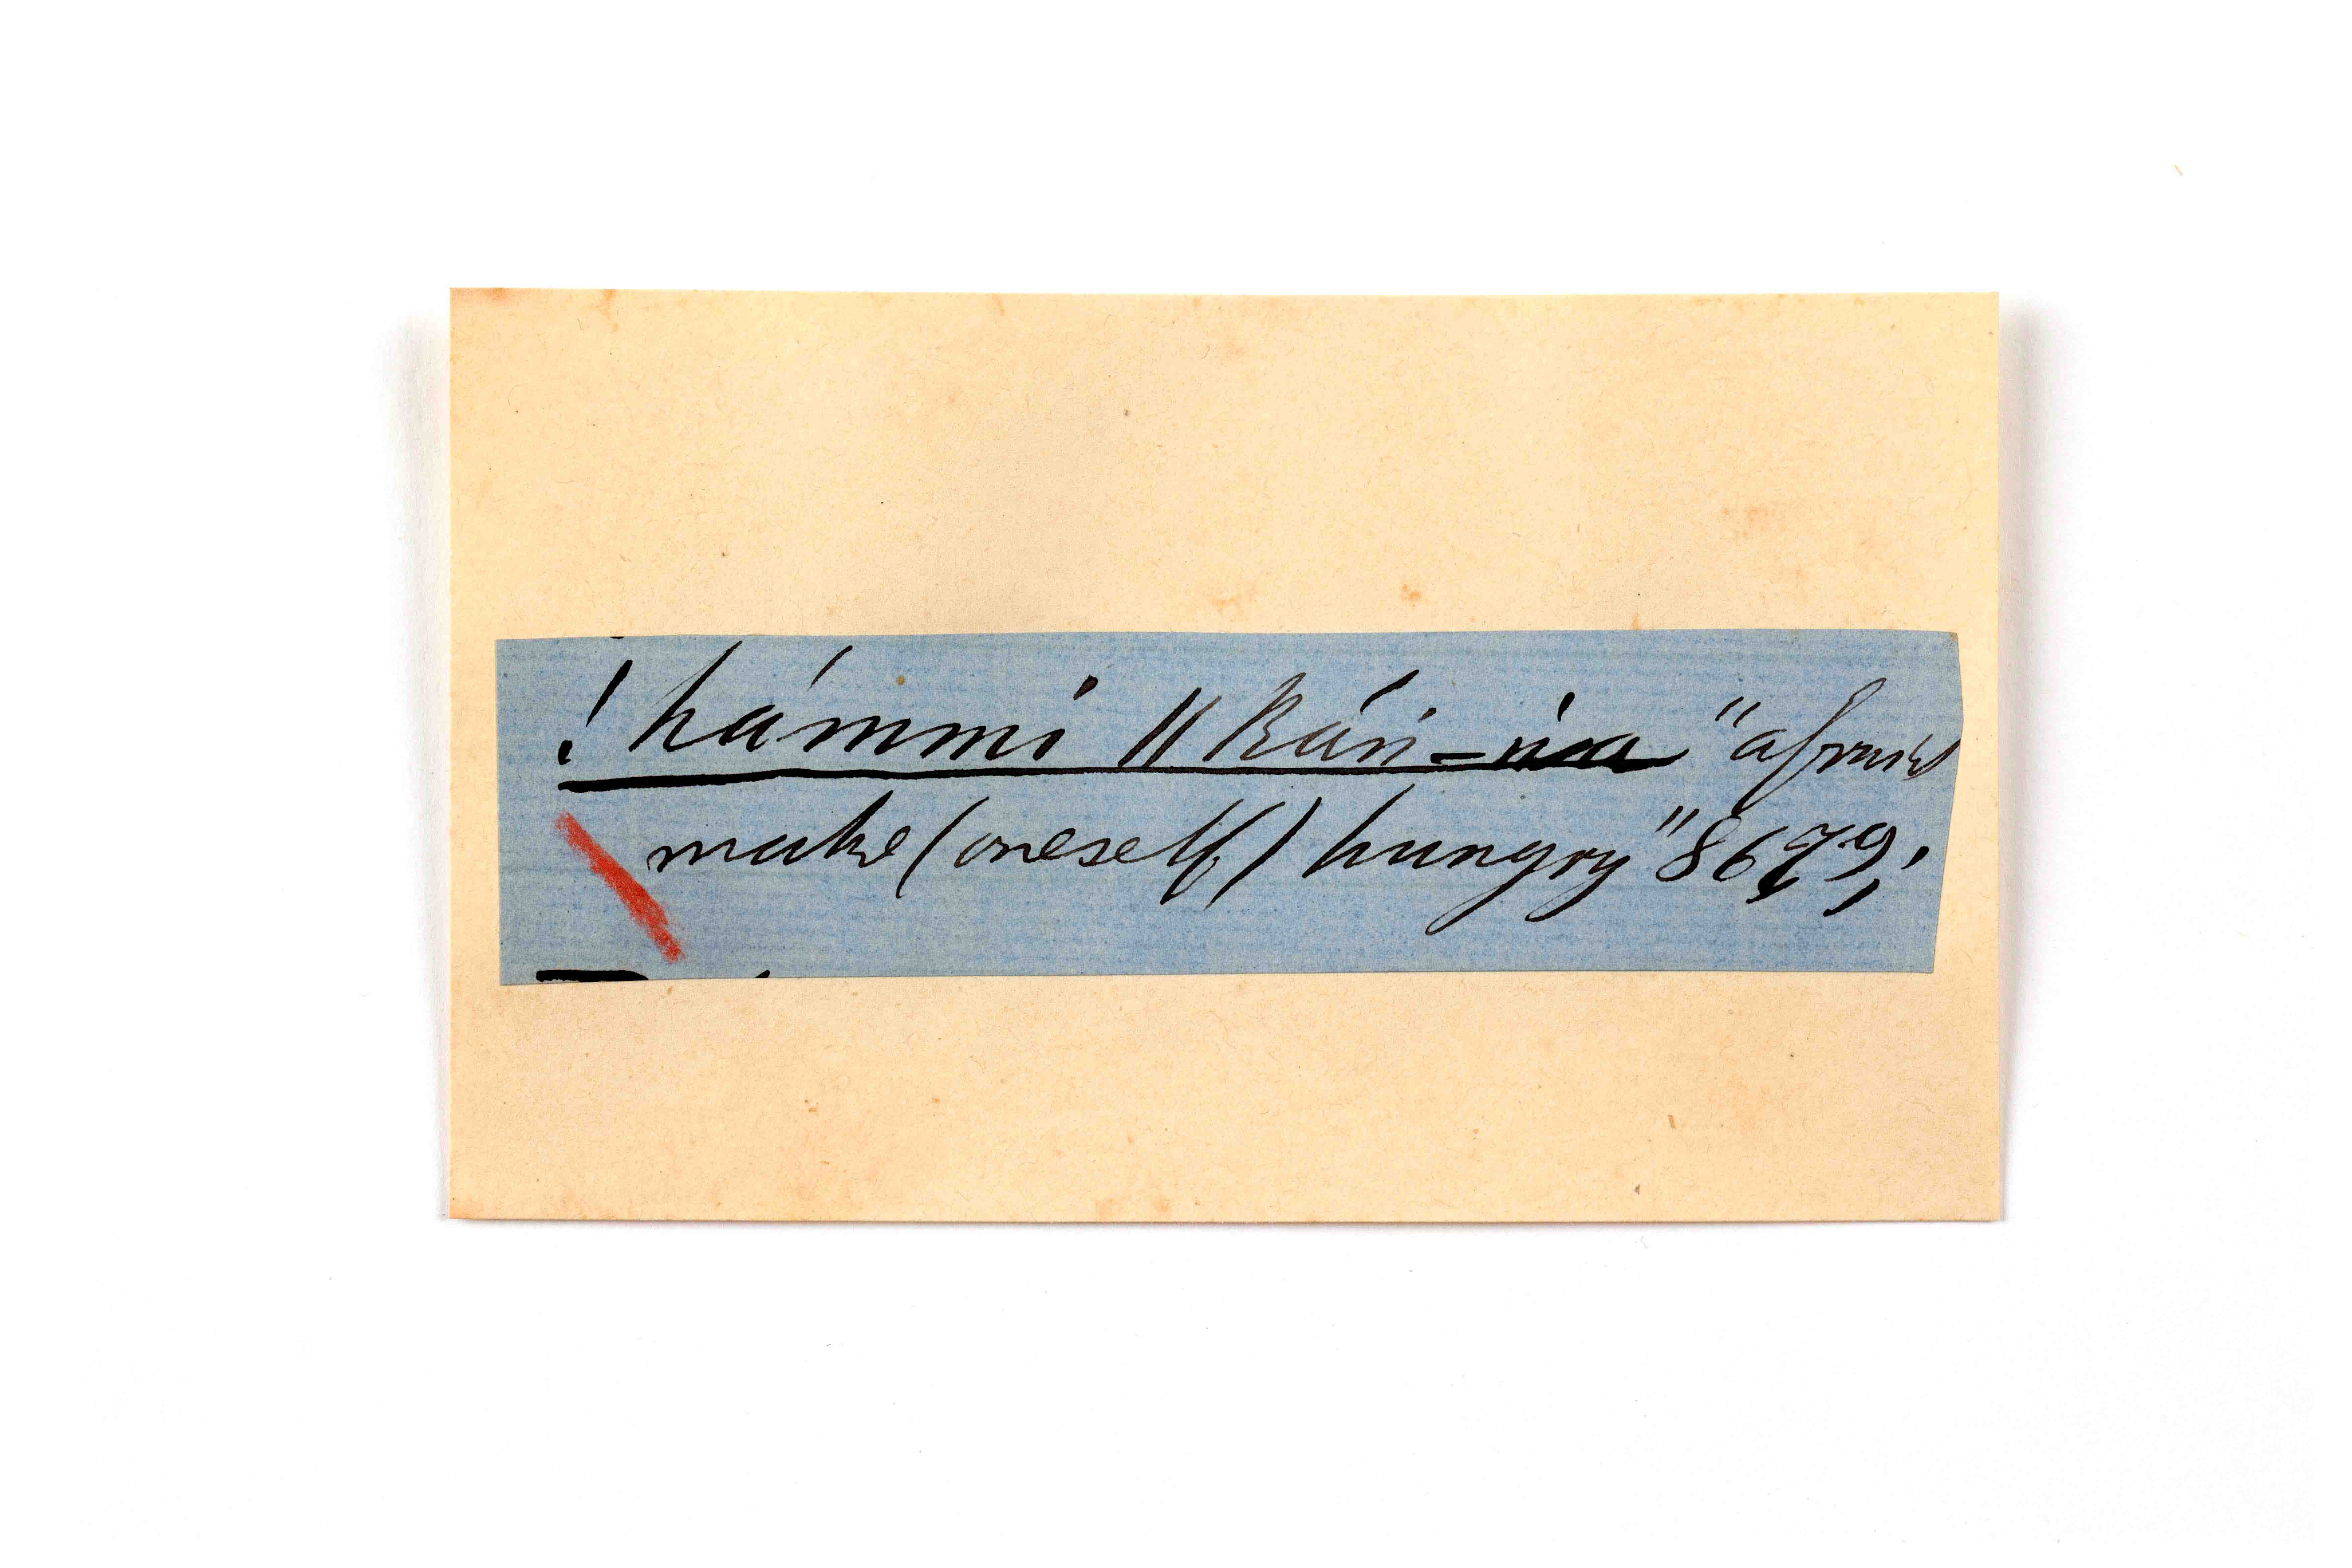 ! hámmi ǁ kán-na "afraid
make (oneself) hungry" 8679;